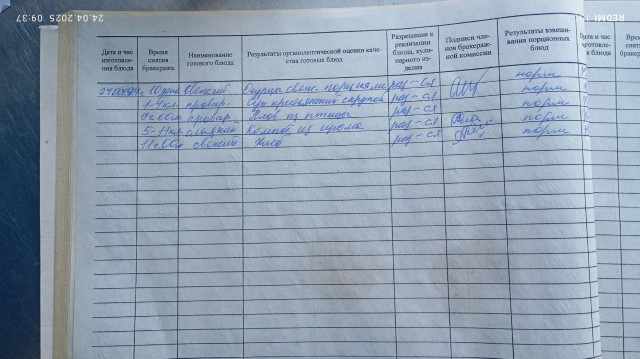 24.04.2025 09:37
REDMI
Дата и час изготовления блюда
Время снятия бракеража
Наименование готового блюда
Результаты органолептической оценки качества готовых блюд
Разрешение к реализации блюда, кулинарного изделия
Подписи членов бракеражной комиссии
Результаты взвешивания порционных блюд
Дата и час
Время снятия
10 день свежий Огурцы свеж. порциями раз-ся норм
1-4 кл. провар. Суп раз-ся норм
9ч 00м провар. Плов из птицы раз-ся норм
5-11 кл сладкий Компот из изюма раз-ся норм
11ч.00м свежий Хлеб раз-ся норм